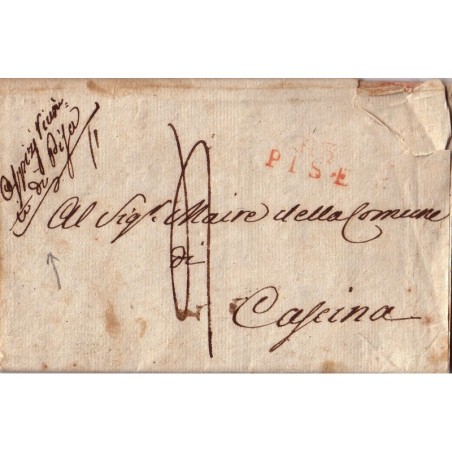 Ospizi Riuni-
ti di Pisa
113
PISE
Al Sig.r Maire della Comune
di
Cascina